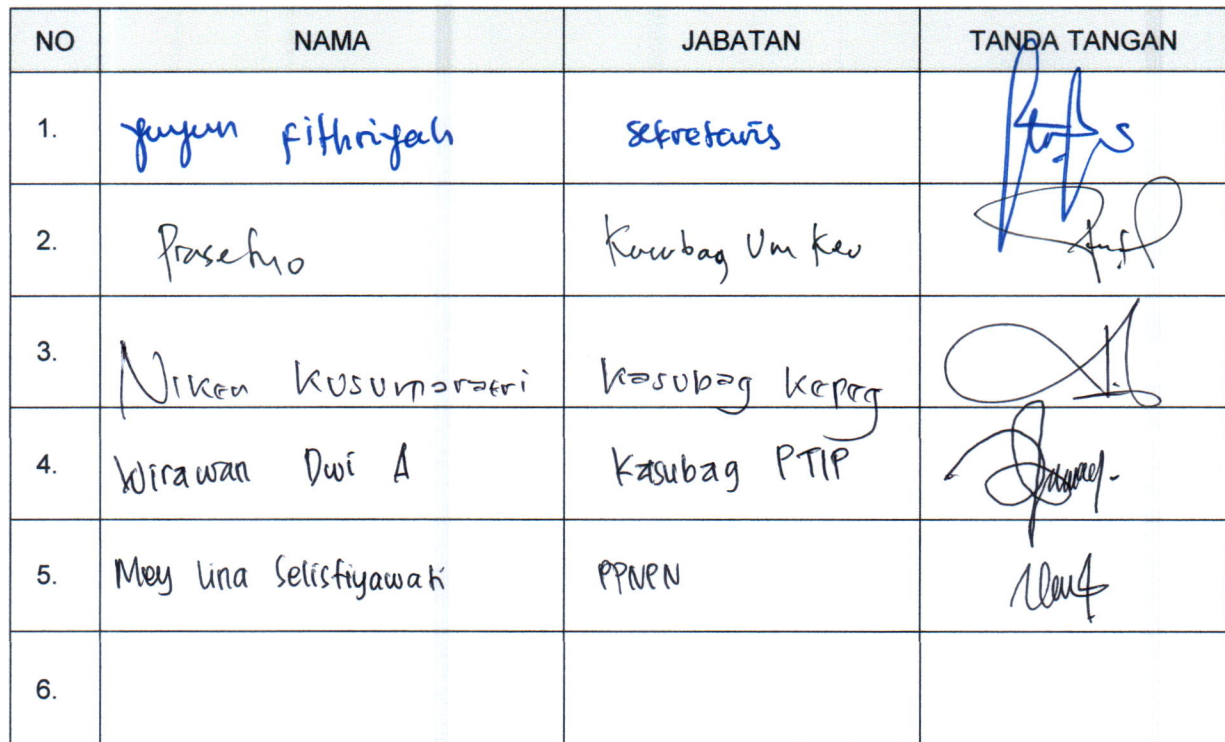 NO NAMA JABATAN TANDA TANGAN
1. Yuyun Fithriyah Sekretaris
2. Prasetyo Kasubag Um Keu
3. Niken Kusumaratri Kasubag Kepeg
4. Wirawan Dwi A Kasubag PTIP
5. Mey Lina Selistiyawati PPNPN
6.